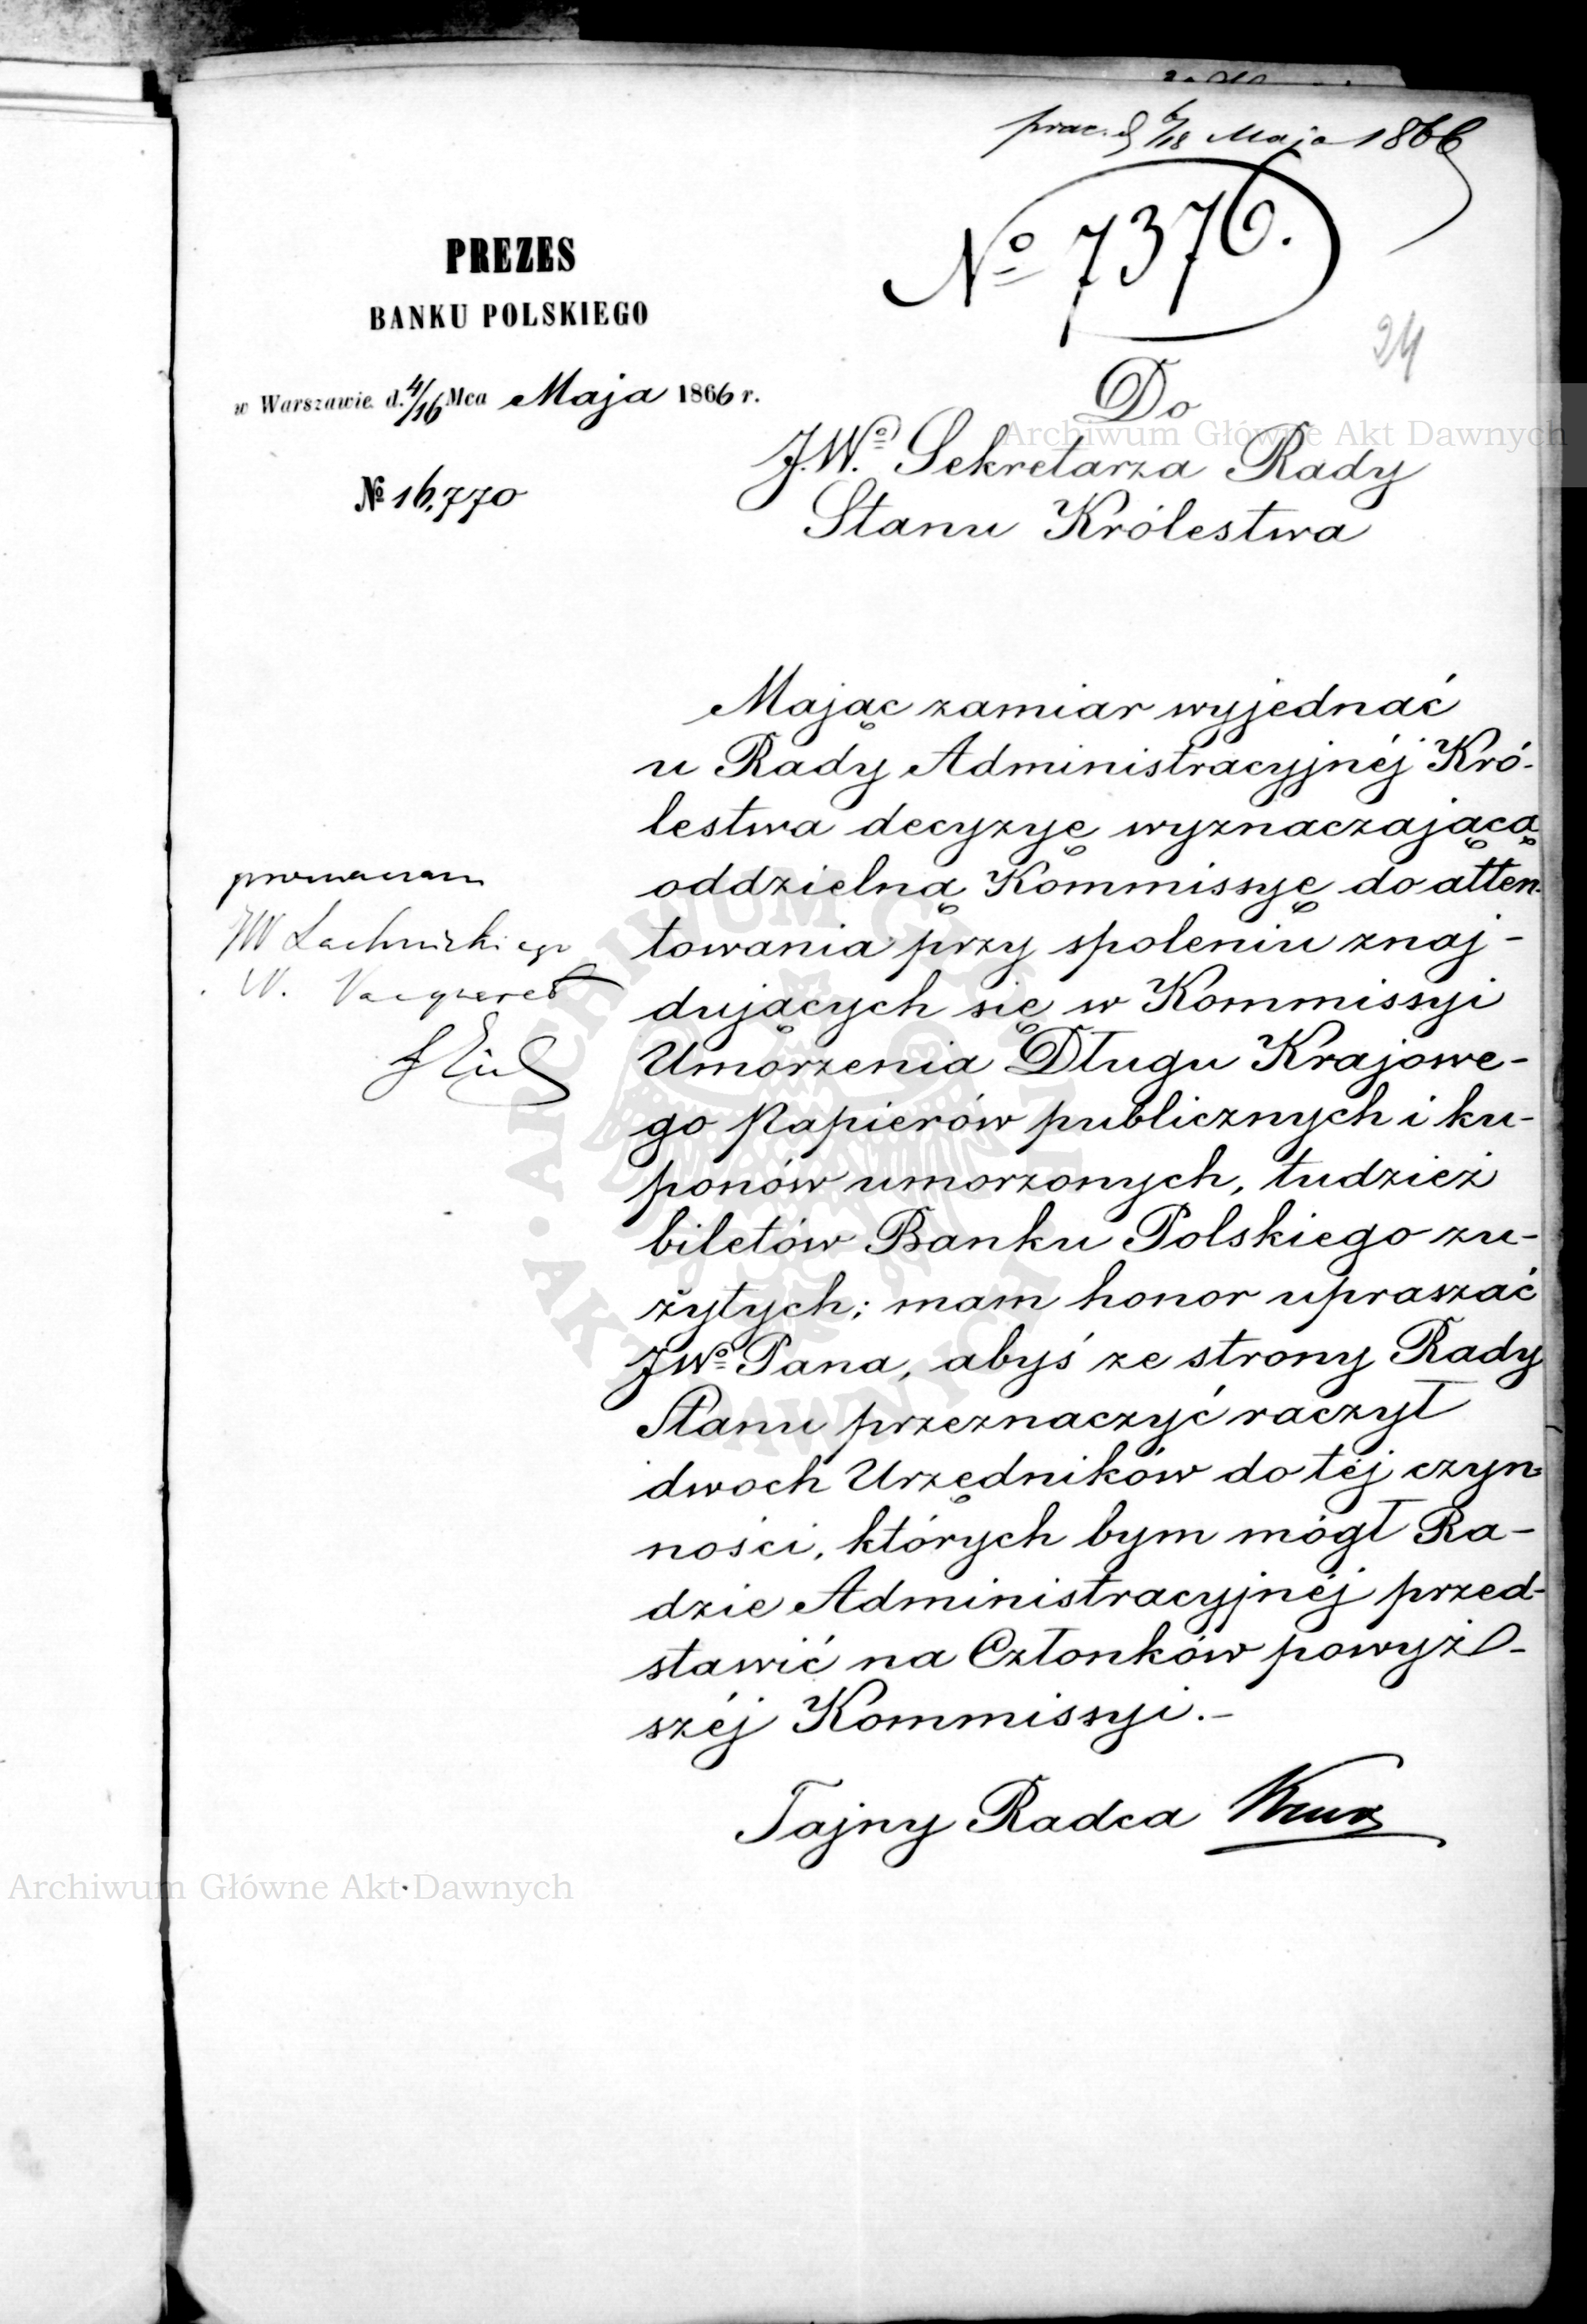 d 6/18 Maja 1866
№ 7376.
24
PREZES
BANKU POLSKIEGO
w Warszawie d. 4/16 Mca Maja 1866 r.
№ 16,770
Do
J.Wo Sekretarza Rady
Stanu Królestwa
Mając zamiar wyjednać
u Rady Administracyjnéj Kró-
lestwa decyzyę wyznaczającą
oddzielną Kommissyę do atten-
towania przy spoleniu znaj-
dujących się w Kommissyi
Umorzenia Długu Krajowe-
go Papierów publicznych i ku-
ponów umorzonych, tudzież
biletów Banku Polskiego zu-
żytych; mam honor upraszać
JWo Pana, abyś ze strony Rady
Stanu przeznaczyć raczył
dwoch Urzędników do téj czyn-
ności, których bym mógł Ra-
dzie Administracyjnéj przed-
stawić na Członków powyż-
széj Kommissyi.-
Tajny Radca
JW Lachnickiego
W.
Archiwum Główne Akt Dawnych
ARCHIWUM GŁÓWNE · AKT DAWNYCH ·
Archiwum Główne Akt Dawnych